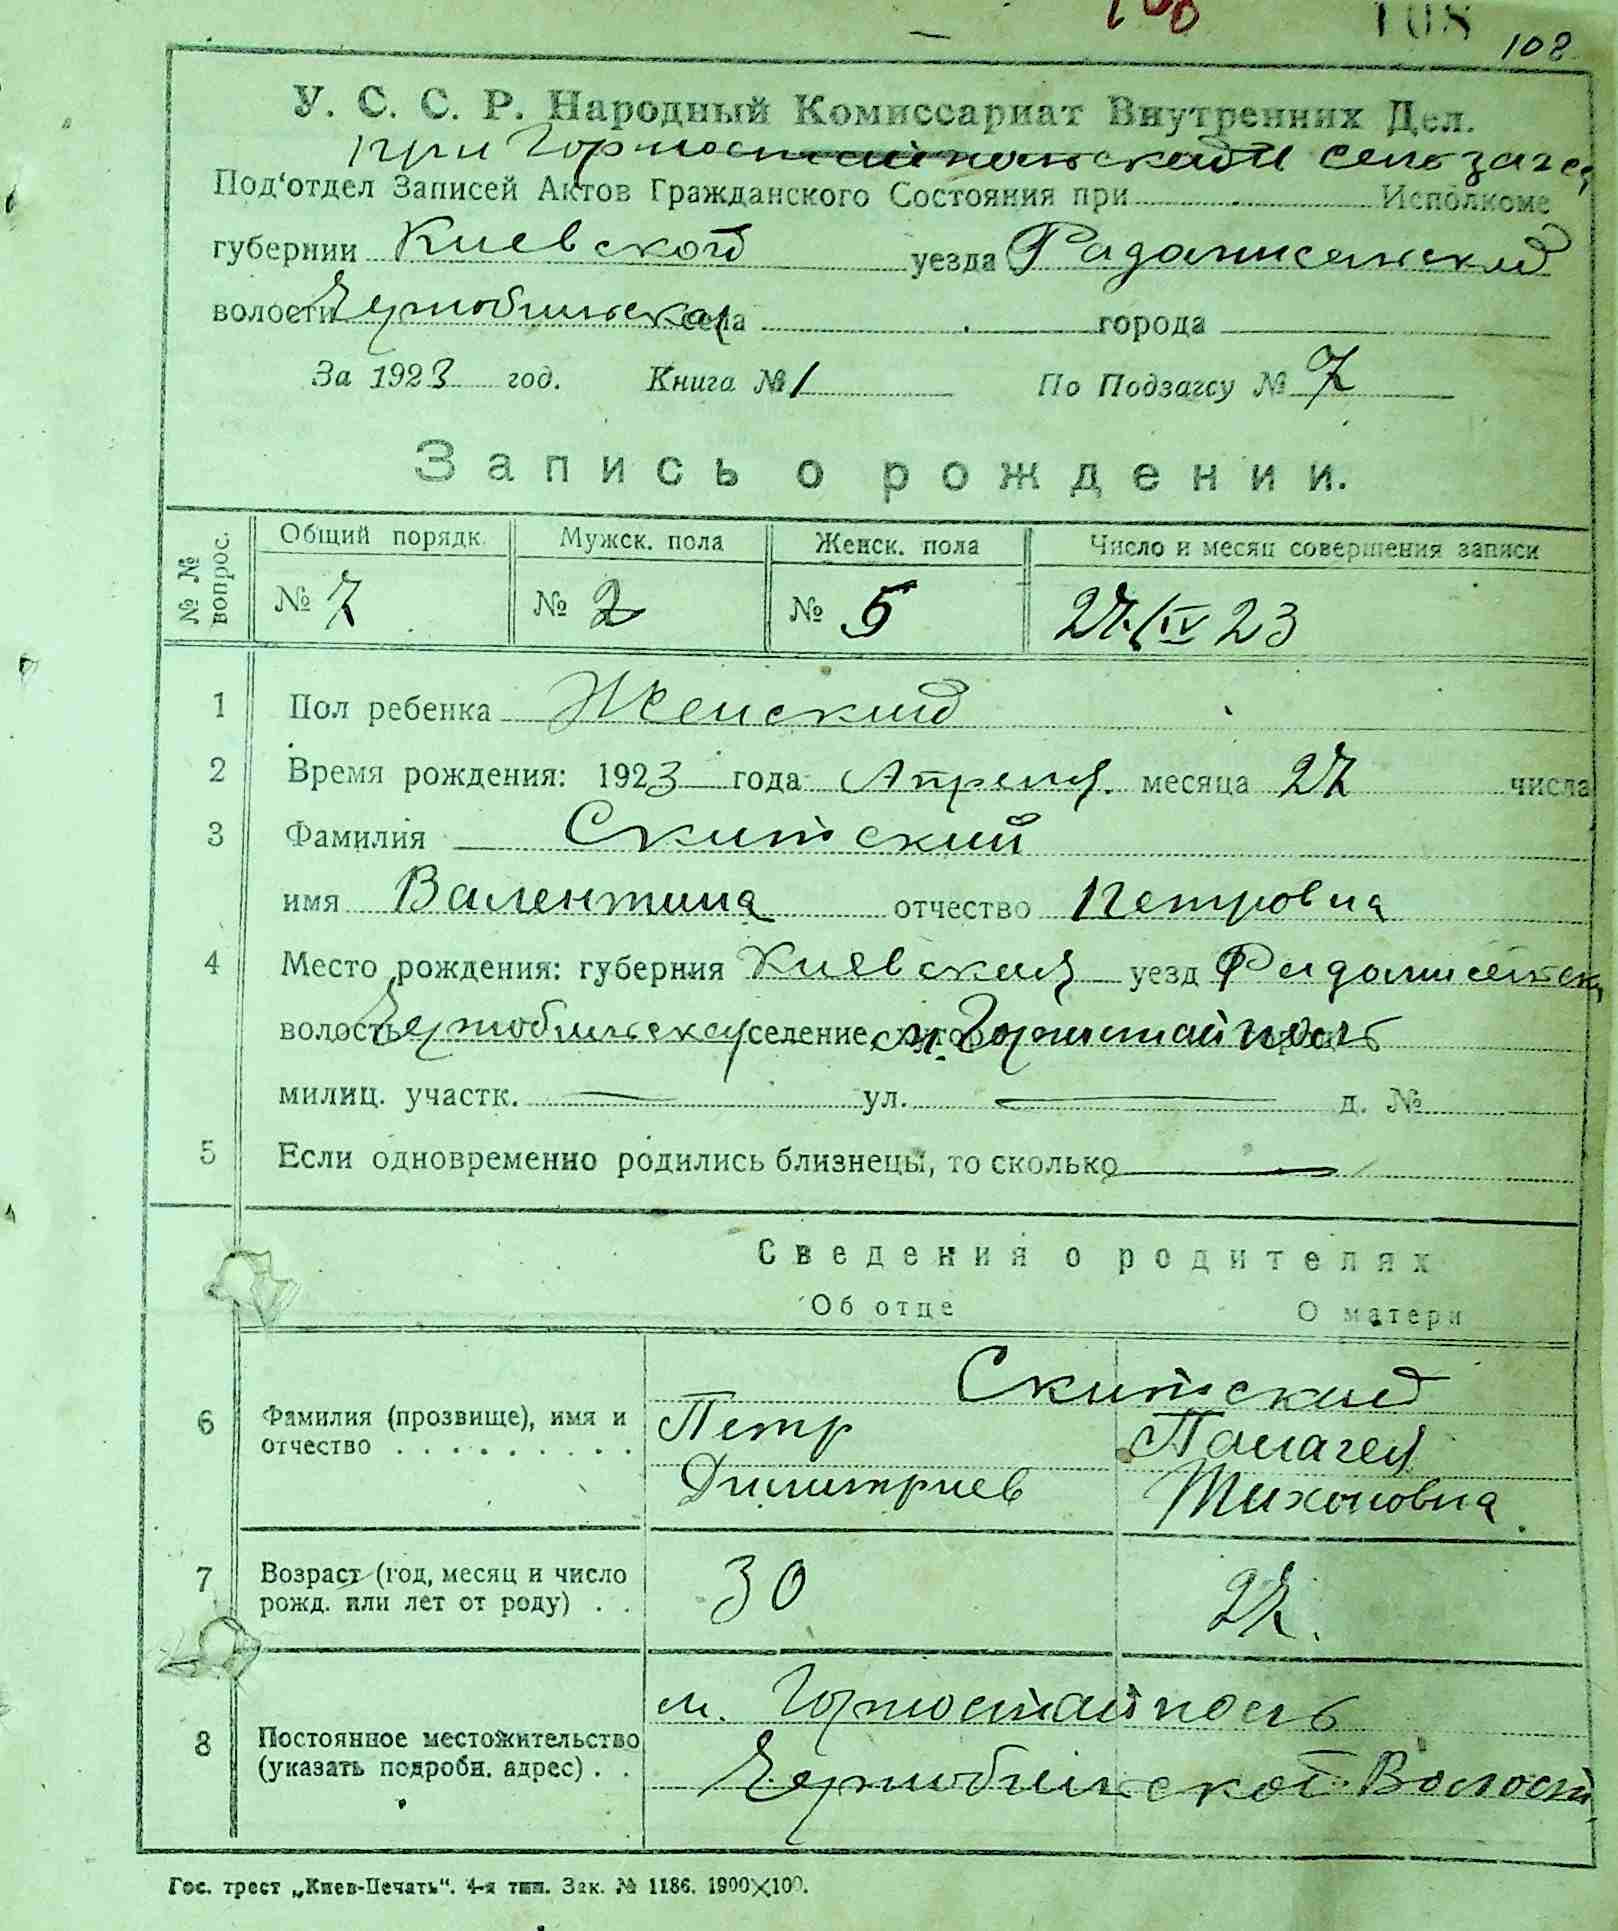 108
108
У. С. С. Р. Народный Комиссариат Внутренних Дел.
при Горностайпольской сельзагсе
Под‘отдел Записей Актов Гражданского Состояния при Исполкоме
губернии Киевской уезда Радомисельский
волости Чернобильская села города
За 1923 год. Книга № 1 По Подзагсу № 7
Запись о рождении.
№ № вопрос. Общий порядк. Мужск. пола Женск. пола Число и месяц совершения записи
№ 7 № 2 № 5 27/IV 23
1 Пол ребенка Женский
2 Время рождения: 1923 года Апреля месяца 27 числа
3 Фамилия Скитский
имя Валентина отчество Петровна
4 Место рождения: губерния Киевская уезд Радомисельск
волость Чернобильская селение м. Горностайполь
милиц. участк. — ул. — д. №
5 Если одновременно родились близнецы, то сколько —
Сведения о родителях
Об отце О матери
Скитский
6 Фамилия (прозвище), имя и отчество . . . . . . . . . Петр Палагея
Димитриев Тихоновна
7 Возраст (год, месяц и число рожд. или лет от роду) . . 30 27.
м. Горностайполь
8 Постоянное местожительство (указать подробн. адрес) . . Чернобильской Волости
Гос. трест „Киев-Печать“. 4-я тип. Зак. № 1186. 1900×100.